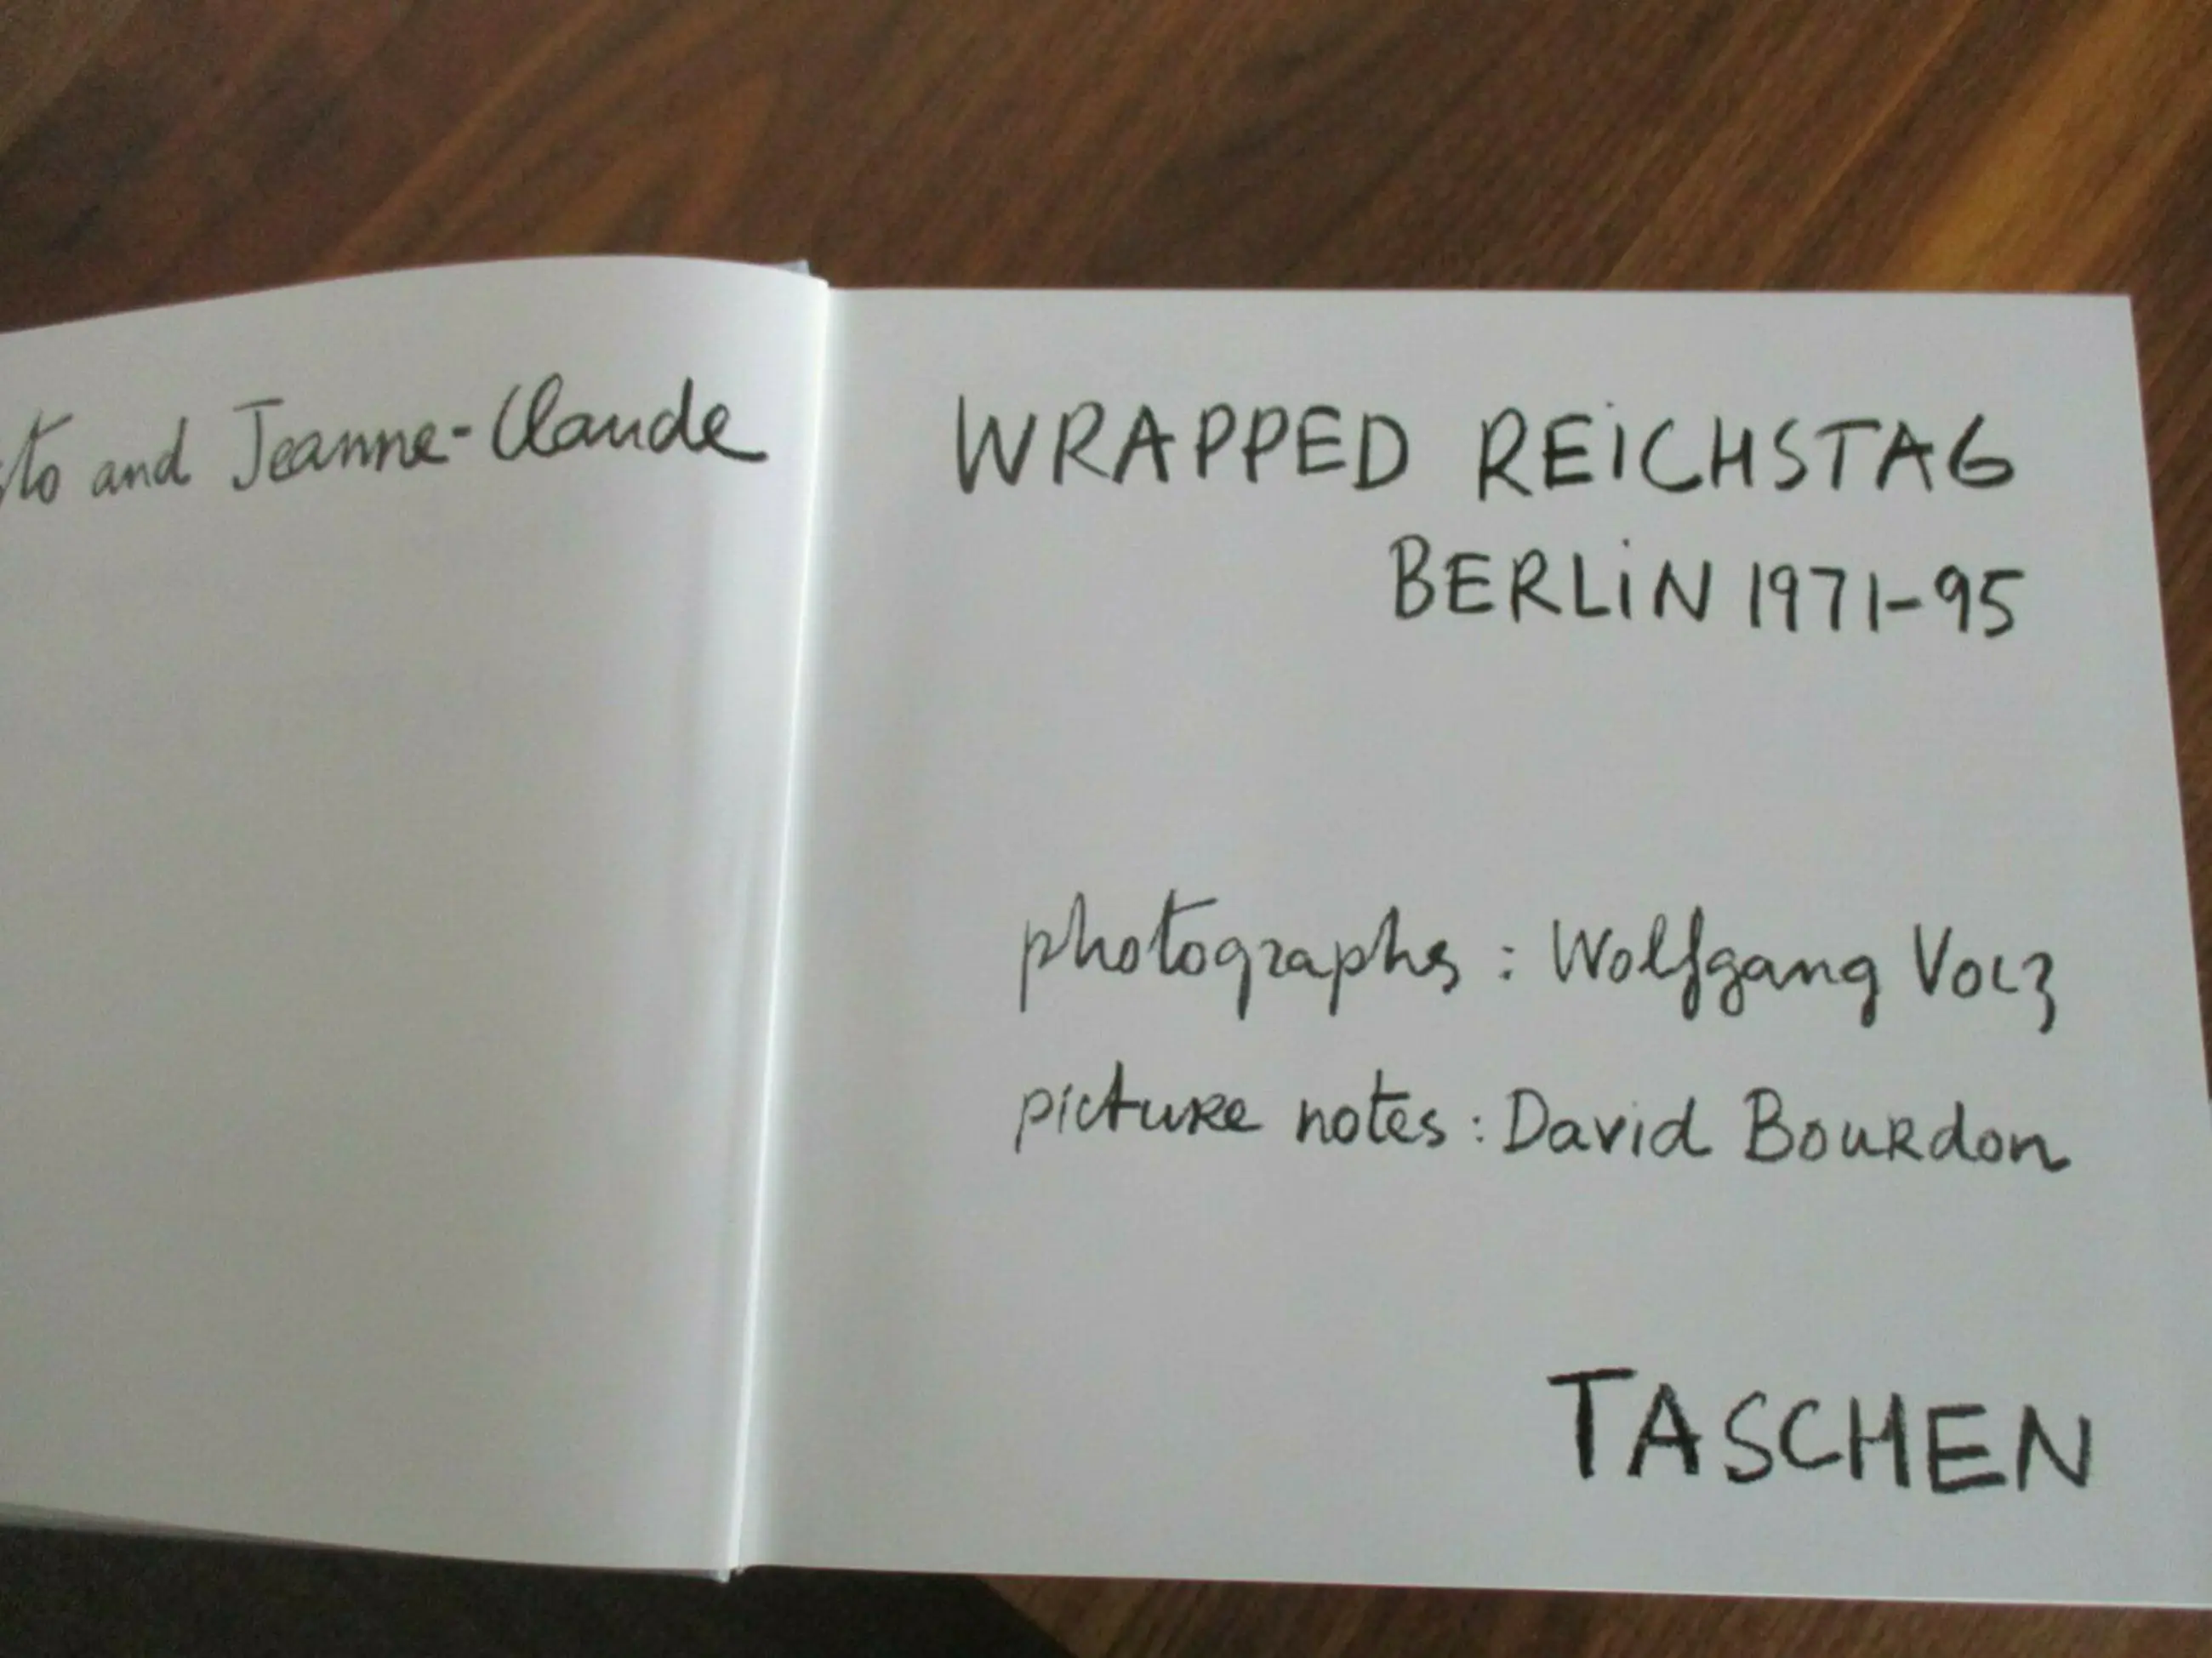 sto and Jeanne-Claude
WRAPPED REICHSTAG
BERLIN 1971-95
photographs : Wolfgang Volz
picture notes : David Bourdon
TASCHEN